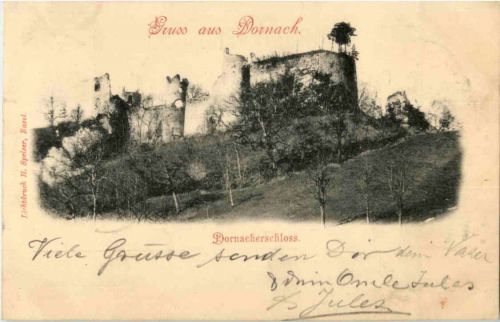 Gruss aus Dornach.
Lichtdruck H. Spelser, Basel.
Dornacherschloss.
Viele Grüsse senden Dir dein Vater
& dein Onkel Jules
Jules